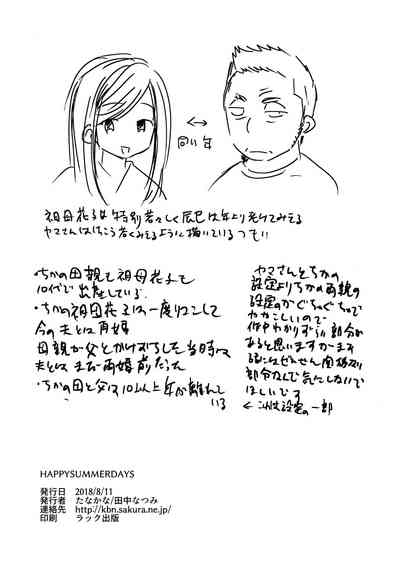 同い年
祖母花子は特別若々しく辰巳は年より老けてみえる
ヤマさんはけっこう若くみえるように描いているつもり
・ちかの母親も祖母花子も
10代で出産している。
・ちかの祖母花子は一度りこんして
今の夫とは再婚
母親が父とかけおちした当時は
夫とはまだ再婚前だった
・ちかの母と父は10以上年が離れて
いる
ヤマさんとちかの
設定よりちかの両親の
設定のがぐちゃぐちゃで
ややこしいので
作中わかりずらい部分が
あると思いますが
ぜんぜん関係ない
部分なんで気にしないで
ほしいです
← これは設定の一部
HAPPYSUMMERDAYS
発行日 2018/8/11
発行者 たなかな/田中なつみ
連絡先 http://kbn.sakura.ne.jp/
印刷 ラック出版